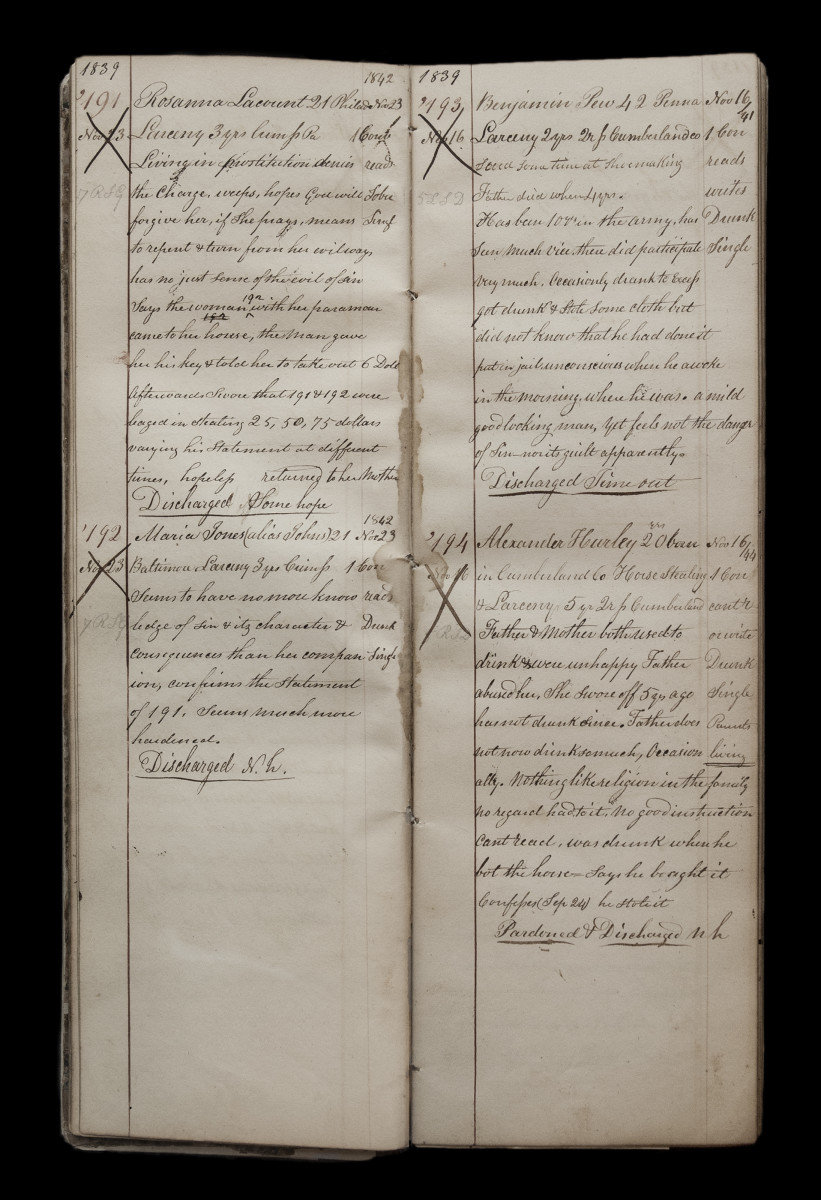 1839
1842
'191 Rosanna Lacount 21 Philad Nov 23
Nov 23 Larceny 3 yrs 1 Conv
Living in prostitution denies reads
the Charge, weeps, hopes God will Sober
forgive her, if She prays, means Sing
to repent & turn from her evil ways
has no just sense of the evil of sin
Says the woman 192 with her paramour
192
came to her house, the man gave
her his key & told her to take out 6 Doll
Afterwards Swore that 191 & 192 were
in Stealing 25, 50, 75 dollars
varying his Statement at different
times, hopeless returned to her Mother
Discharged Some hope
1842
'192 Maria Jones (alias Johns) 21 Nov 23
Nov 23 Baltimore Larceny 3 ys 1 Con
Seems to have no more know reads
ledge of Sin & its character & Drunk
consequences than her compan Single
ion, confirms the Statement
of 191. Seems much more
hardened.
Discharged N. h.
1839
'193 Benjamin Pew 42 Penna Nov 16/41
Nov 16 Larceny 2 yrs 2r p Cumberland co 1 Con
Some time at Shoemaking reads
Father died when 4 yrs. writes
Has been 10 yr in the army, has Drunk
Seen much vice then did participate Single
very much. Occasionly drank to Excess
got drunk & Stole Some cloth but
did not know that he had done it
put in jail unconscious when he awoke
in the morning, where he was. a mild
good looking man, yet feels not the danger
of Sin nor its guilt apparently.
Discharged Time out
'194 Alexander Hurley 20 yrs born Nov 16/44
Nov 16 in Cumberland Co Horse Stealing 1 Con
& Larceny 5 yr 2r p Cumberland cant r
Father & Mother both used to or write
drink & were unhappy Father Drunk
abused her, She Swore off 5 ys ago Single
has not drunk Since. Father does Parents
not now drink so much, Occasion living
ally. Nothing like religion in the family
no regard had to it. No good instruction
Cant read, was drunk when he
bot the horse – Says he bought it
Confesses (Sep 24) he Stole it
Pardoned & Discharged n h